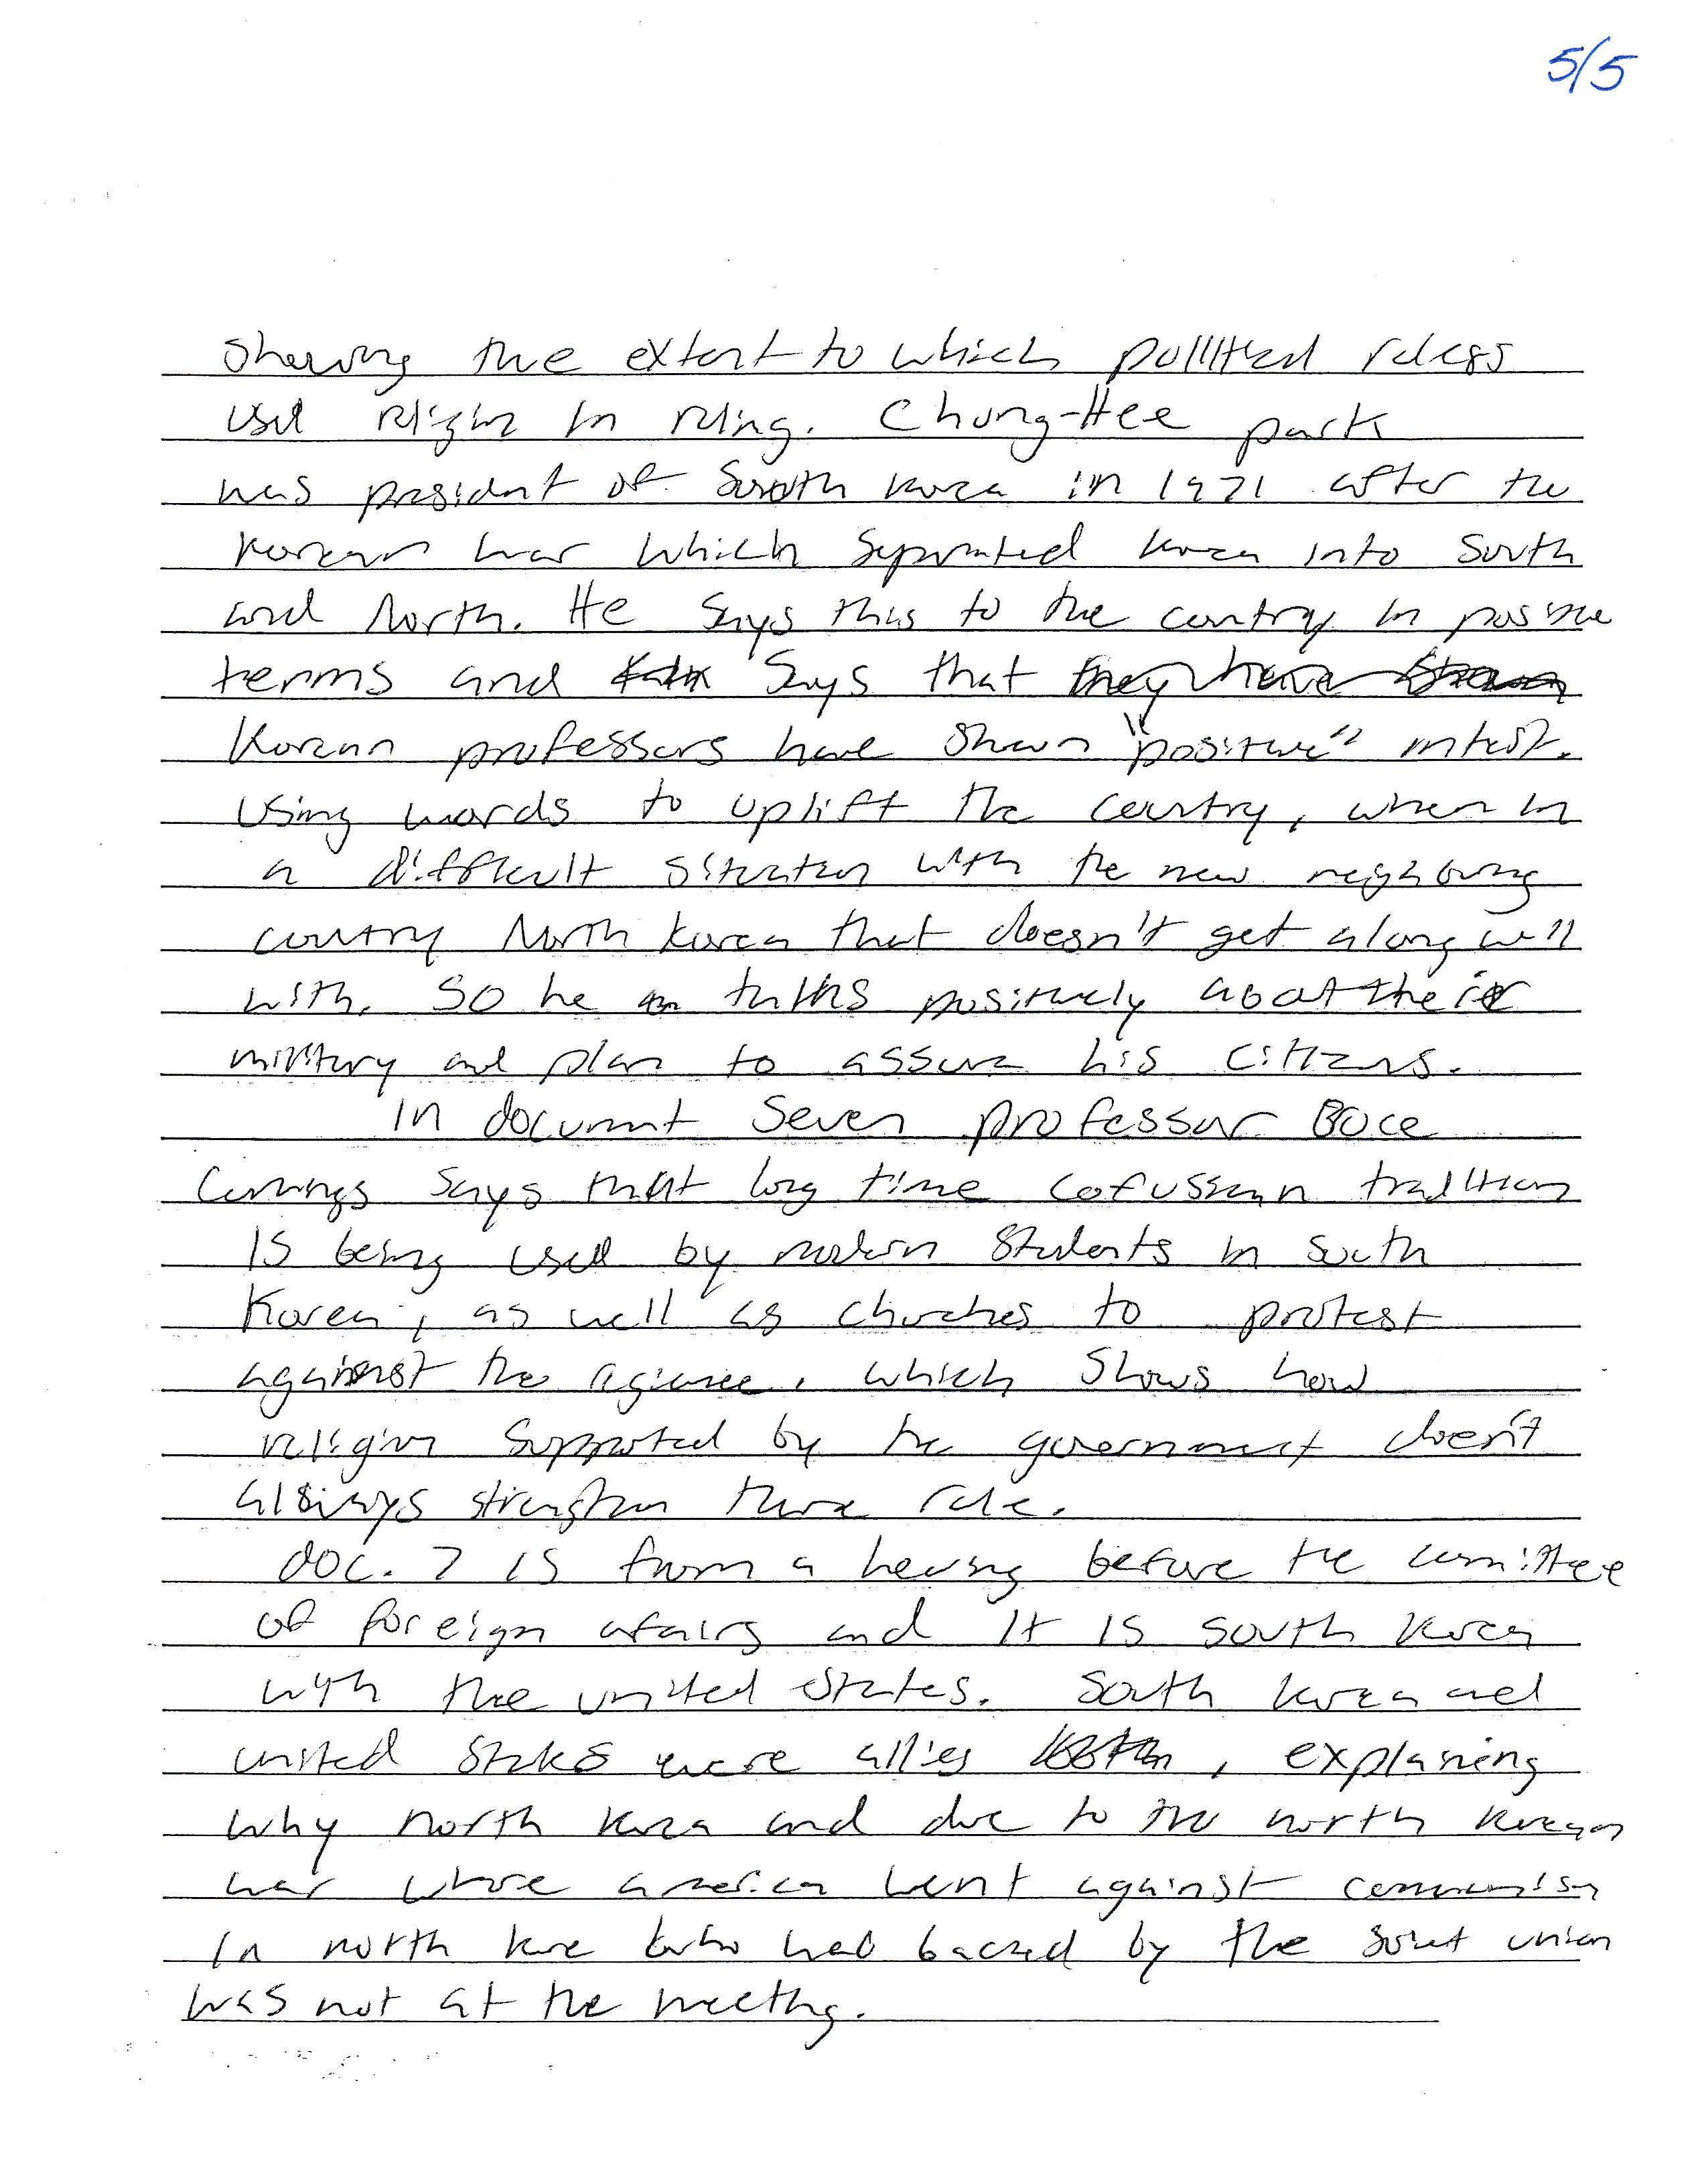 5/5
Showing the extent to which political rulers
used religion in ruling. Chung-Hee park
was president of South Korea in 1971 after the
Korean war which separated Korea into South
and North. He says this to the country in positive
terms and says that
Korean professors have shown "positive" interest.
Using words to uplift the country, when in
a difficult situation with the new neighboring
country North Korea that doesn't get along well
with. SO he talks positively about their
military and plan to assure his citizens.
In document Seven professor
Cumings says that long time cofussian tradition
is being used by modern students in South
Korea, as well as churches to protest
against the which shows how
religion supported by the government doesn't
always strengthen rule.
DOC. 7 is from a hearing before the committee
of foreign afairs and it is South Korea
with the united states. South Korea and
united states were allies , explaning
why north Korea and due to the north Korean
war where america went against communism
in north Kore who had backed by the soviet union
was not at the meeting.